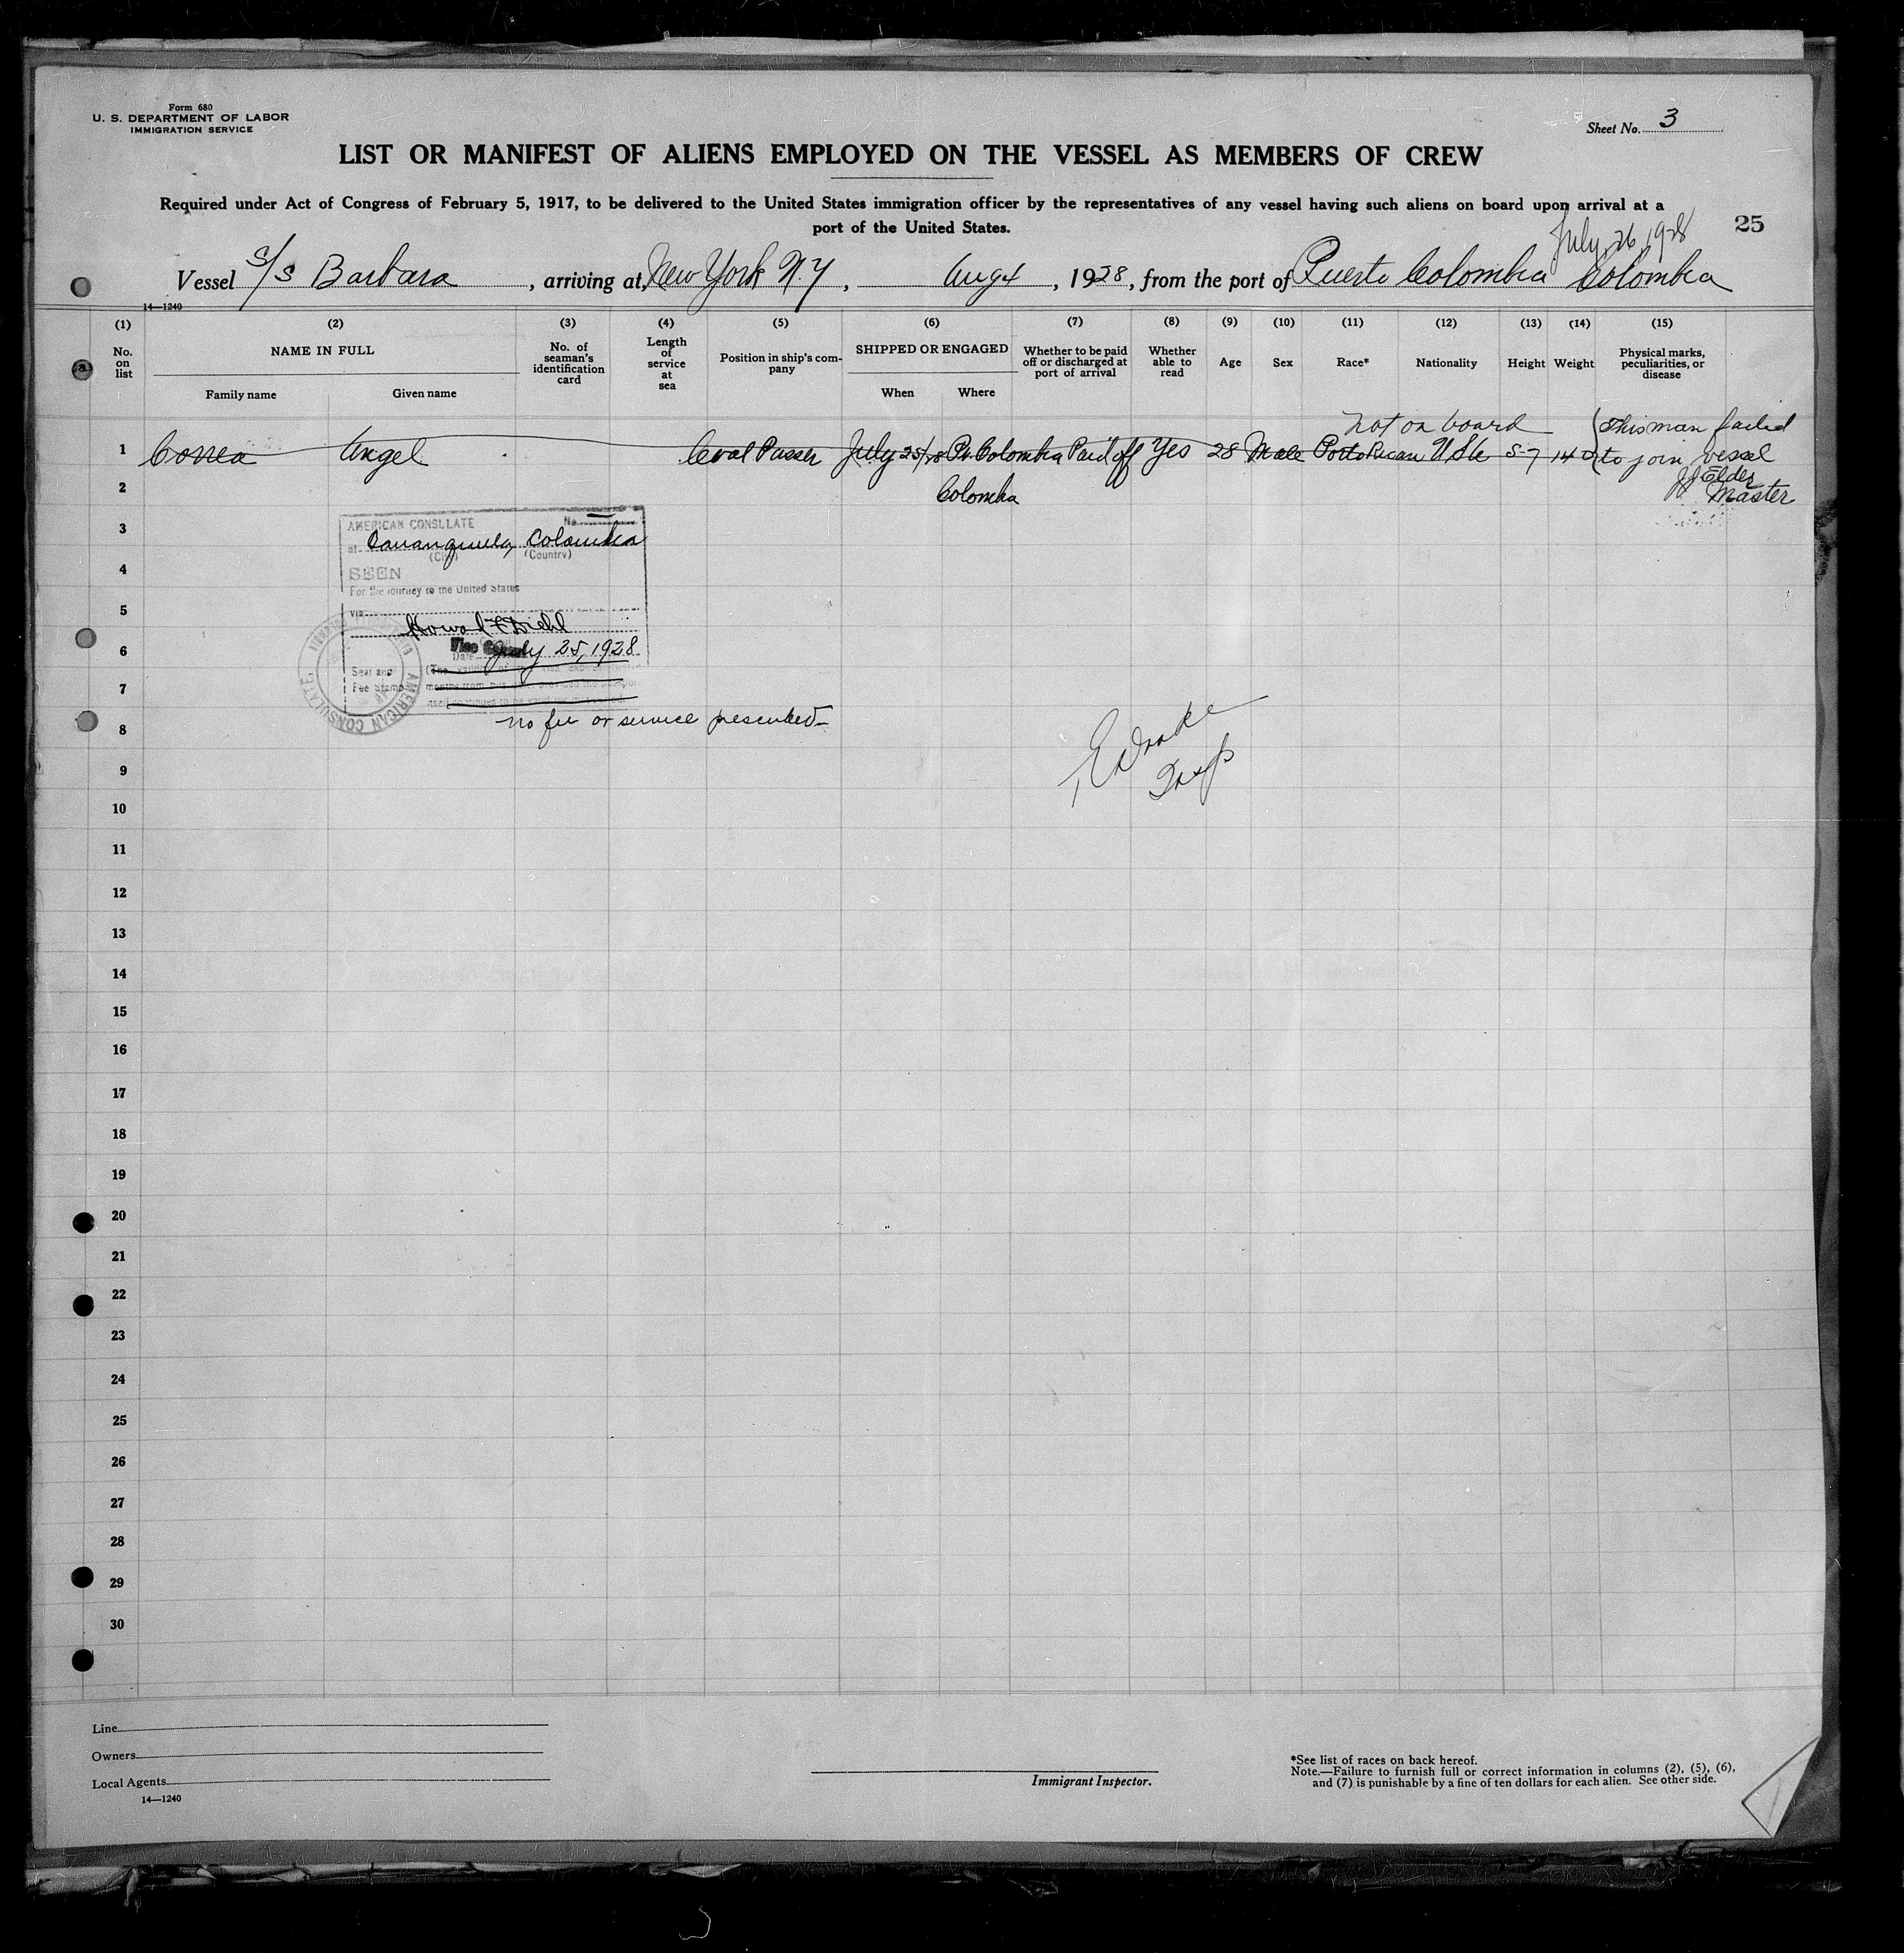 Form 680
U. S. DEPARTMENT OF LABOR
IMMIGRATION SERVICE
Sheet No. 3
LIST OR MANIFEST OF ALIENS EMPLOYED ON THE VESSEL AS MEMBERS OF CREW
Required under Act of Congress of February 5, 1917, to be delivered to the United States immigration officer by the representatives of any vessel having such aliens on board upon arrival at a
port of the United States.
25
July 26, 1928
Vessel S/S Barbara, arriving at, New York N.Y, Aug 4, 1928, from the port of Puerto Colombia Colombia
14—1240
(1) (2) (3) (4) (5) (6) (7) (8) (9) (10) (11) (12) (13) (14) (15)
No. on list
NAME IN FULL
Family name Given name
No. of seaman's identification card
Length of service at sea
Position in ship's company
SHIPPED OR ENGAGED
When Where
Whether to be paid off or discharged at port of arrival
Whether able to read
Age
Sex
Race*
Nationality
Height
Weight
Physical marks, peculiarities, or disease
not on board
This man failed
1 Correa Angel Coal Passer July 25/28 Pt. Colombia Paid off Yes 28 Male Porto Rican 5-7 140 to join vessel
2 Colombia
JJ Elder
Master
3
AMERICAN CONSULATE No.
at Colombia
(City) (Country)
4
SEEN
For the journey to the United States
5
via
Howard F Diehl
6
Vice
Date July 25, 1928
Seal and
Fee Stamp
7
AMERICAN CONSULATE
no fee or service prescribed
8
9
Insp
10
11
12
13
14
15
16
17
18
19
20
21
22
23
24
25
26
27
28
29
30
Line
Owners
Local Agents
14—1240
Immigrant Inspector.
*See list of races on back hereof.
Note.—Failure to furnish full or correct information in columns (2), (5), (6),
and (7) is punishable by a fine of ten dollars for each alien. See other side.